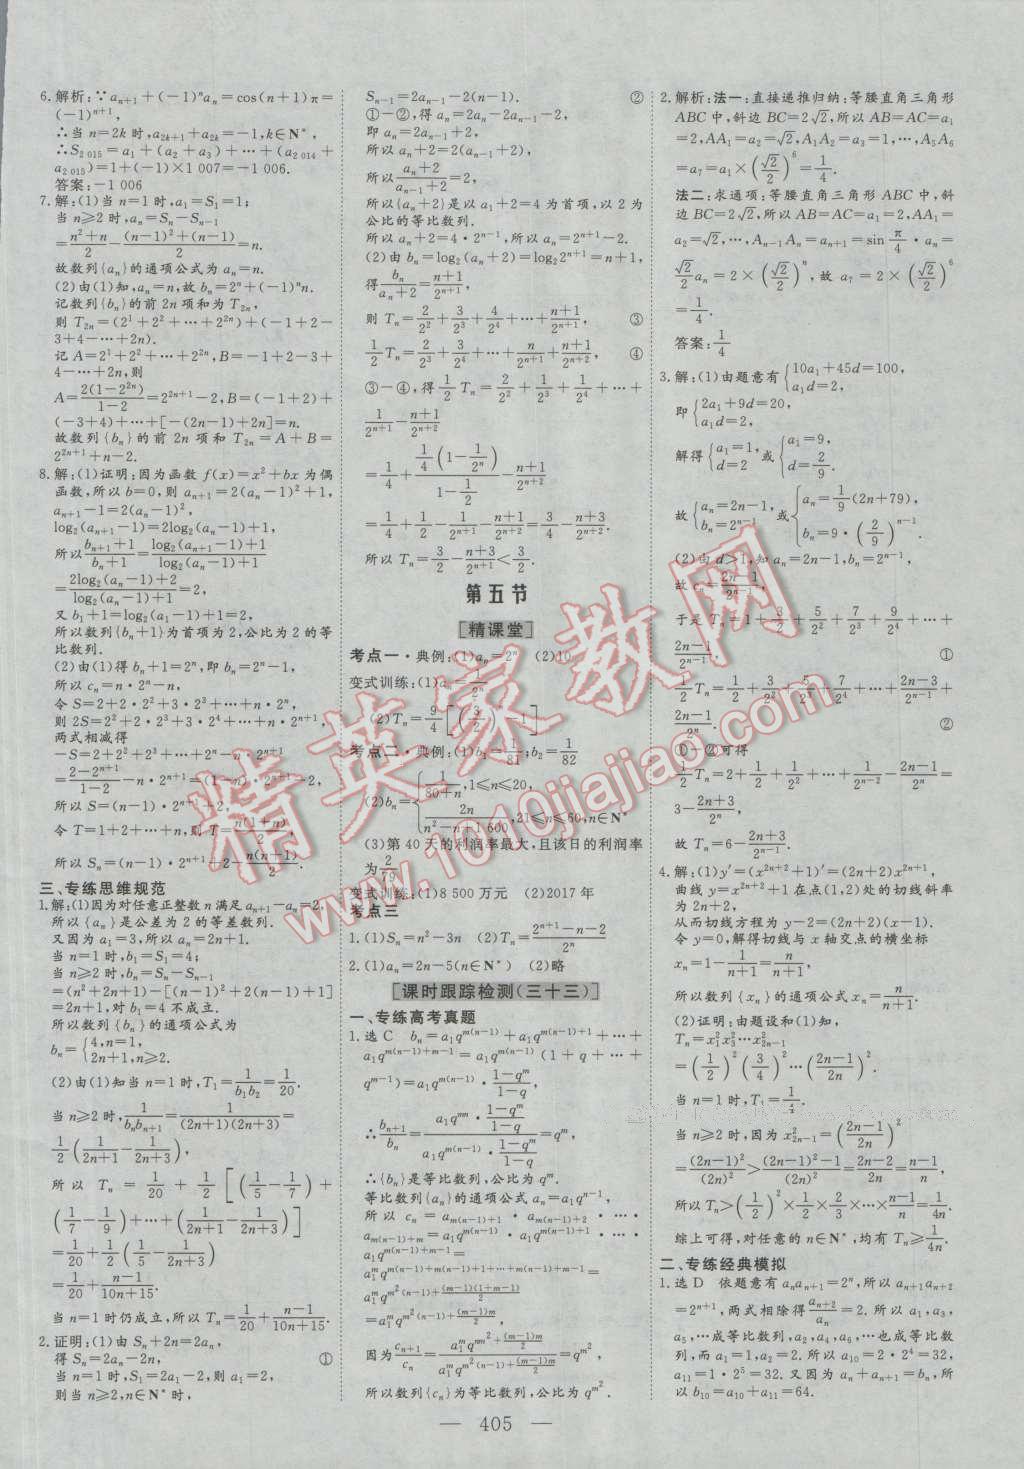 6.解析:∵aₙ₊₁+(-1)ⁿaₙ=cos(n+1)π=
(-1)ⁿ⁺¹,
∴当 n=2k 时,a₂ₖ₊₁+a₂ₖ=-1,k∈N*,
∴S₂₀₁₅=a₁+(a₂+a₃)+…+(a₂₀₁₄+
a₂₀₁₅)=1+(-1)×1 007=-1 006.
答案:-1 006
7.解:(1)当 n=1 时,a₁=S₁=1;
当 n≥2 时,aₙ=Sₙ-Sₙ₋₁
=(n²+n)/2-[(n-1)²+(n-1)]/2=n.
故数列{aₙ}的通项公式为 aₙ=n.
(2)由(1)知,aₙ=n,故 bₙ=2ⁿ+(-1)ⁿn.
记数列{bₙ}的前 2n 项和为 T₂ₙ,
则 T₂ₙ=(2¹+2²+…+2²ⁿ)+(-1+2-
3+4-…+2n).
记 A=2¹+2²+…+2²ⁿ,B=-1+2-3+
4-…+2n,则
A=2(1-2²ⁿ)/(1-2)=2²ⁿ⁺¹-2,B=(-1+2)+
(-3+4)+…+[-(2n-1)+2n]=n.
故数列{bₙ}的前 2n 项和 T₂ₙ=A+B=
2²ⁿ⁺¹+n-2.
8.解:(1)证明:因为函数 f(x)=x²+bx 为偶
函数,所以 b=0,则 aₙ₊₁=2(aₙ-1)²+1,
aₙ₊₁-1=2(aₙ-1)²,
log₂(aₙ₊₁-1)=2log₂(aₙ-1)+1,
所以(bₙ₊₁+1)/(bₙ+1)=[log₂(aₙ₊₁-1)+1]/[log₂(aₙ-1)+1]
=[2log₂(aₙ-1)+2]/[log₂(aₙ-1)+1]=2,
又 b₁+1=log₂(a₁-1)+1=2,
所以数列{bₙ+1}为首项为 2,公比为 2 的等
比数列.
(2)由(1)得 bₙ+1=2ⁿ,即 bₙ=2ⁿ-1,
所以 cₙ=n·2ⁿ,
令 S=2+2·2²+3·2³+…+n·2ⁿ,
则 2S=2²+2·2³+3·2⁴+…+n·2ⁿ⁺¹,
两式相减得
-S=2+2²+2³+…+2ⁿ-n·2ⁿ⁺¹
=(2-2ⁿ⁺¹)/(1-2)-n·2ⁿ⁺¹=(1-n)·2ⁿ⁺¹-2,
所以 S=(n-1)·2ⁿ⁺¹+2.
令 T=1+2+…+n,则 T=n(1+n)/2,
所以 Sₙ=(n-1)·2ⁿ⁺¹+2-n(n-1)/2.
三、专练思维规范
1.解:(1)因为对任意正整数 n 满足 aₙ₊₁-aₙ=2,
所以{aₙ}是公差为 2 的等差数列.
又因为 a₁=3,所以 aₙ=2n+1.
当 n=1 时,b₁=S₁=4;
当 n≥2 时,bₙ=Sₙ-Sₙ₋₁
=(n²+2n+1)-[(n-1)²+2(n-1)+1]
=2n+1,对 b₁=4 不成立.
所以数列{bₙ}的通项公式为
bₙ={4,n=1,
2n+1,n≥2.
(2)由(1)知当 n=1 时,T₁=1/(b₁b₂)=1/20.
当 n≥2 时,1/(bₙbₙ₊₁)=1/[(2n+1)(2n+3)]=
1/2(1/(2n+1)-1/(2n+3)),
所以 Tₙ=1/20+1/2[(1/5-1/7)+
(1/7-1/9)+…+(1/(2n+1)-1/(2n+3))]
=1/20+1/2(1/5-1/(2n+3))
=1/20+(n-1)/(10n+15).
当 n=1 时仍成立,所以 Tₙ=1/20+(n-1)/(10n+15).
2.证明:(1)由 Sₙ+2n=2aₙ,
得 Sₙ=2aₙ-2n, ①
当 n=1 时,S₁=2a₁-2,则 a₁=2,
则当 n≥2,n∈N*时,
Sₙ₋₁=2aₙ₋₁-2(n-1). ②
①-②,得 aₙ=2aₙ-2aₙ₋₁-2,
即 aₙ=2aₙ₋₁+2,
所以 aₙ+2=2(aₙ₋₁+2),
所以(aₙ+2)/(aₙ₋₁+2)=2,
所以{aₙ+2}是以 a₁+2=4 为首项,以 2 为
公比的等比数列.
所以 aₙ+2=4·2ⁿ⁻¹,所以 aₙ=2ⁿ⁺¹-2.
(2)由 bₙ=log₂(aₙ+2)=log₂2ⁿ⁺¹=n+1,
得 bₙ/(aₙ+2)=(n+1)/2ⁿ⁺¹,
则 Tₙ=2/2²+3/2³+4/2⁴+…+(n+1)/2ⁿ⁺¹, ③
1/2 Tₙ=2/2³+3/2⁴+…+n/2ⁿ⁺¹+(n+1)/2ⁿ⁺², ④
③-④,得 1/2 Tₙ=2/2²+1/2³+1/2⁴+…+
1/2ⁿ⁺¹-(n+1)/2ⁿ⁺²
=1/4+[1/4(1-1/2ⁿ)]/(1-1/2)-(n+1)/2ⁿ⁺²
=1/4+1/2-1/2ⁿ⁺¹-(n+1)/2ⁿ⁺²=3/4-(n+3)/2ⁿ⁺².
所以 Tₙ=3/2-(n+3)/2ⁿ⁺¹<3/2.
第五节
精课堂
考点一·典例:(1)aₙ=2ⁿ (2)10
变式训练:(1)aₙ=
(2)Tₙ=9/4
考点二·典例:(1)b₁=1/81;b₂=1/82
(2)bₙ={1/(80+n),1≤n≤20,
2n/(n²-n+1 600),21≤n≤60,n∈N*
(3)第 40 天的利润率最大,且该日的利润率
为 2/79
变式训练:(1)8 500 万元 (2)2017 年
考点三
1.(1)Sₙ=n²-3n (2)Tₙ=(2ⁿ⁺¹-n-2)/2ⁿ
2.(1)aₙ=2n-5(n∈N*) (2)略
课时跟踪检测(三十三)
一、专练高考真题
1.选 C bₙ=a₁qᵐ⁽ⁿ⁻¹⁾+a₁qᵐ⁽ⁿ⁻¹⁾⁺¹+…+
a₁qᵐ⁽ⁿ⁻¹⁾⁺ᵐ⁻¹=a₁qᵐ⁽ⁿ⁻¹⁾(1+q+…+
qᵐ⁻¹)=a₁qᵐ⁽ⁿ⁻¹⁾·(1-qᵐ)/(1-q),
∴bₙ₊₁/bₙ=[a₁qⁿᵐ·(1-qᵐ)/(1-q)]/[a₁qᵐ⁽ⁿ⁻¹⁾·(1-qᵐ)/(1-q)]=qᵐ,
∴{bₙ}是等比数列,公比为 qᵐ.
等比数列{aₙ}的通项公式 aₙ=a₁qⁿ⁻¹,
所以 cₙ=a_{m(n-1)+1}·a_{m(n-1)+2}·…·
a_{m(n-1)+m}=a₁qᵐ⁽ⁿ⁻¹⁾·a₁qᵐ⁽ⁿ⁻¹⁾⁺¹·…·
a₁qᵐ⁽ⁿ⁻¹⁾⁺ᵐ⁻¹=
a₁ᵐq^{m(n-1)+m(n-1)+1+…+m(n-1)+m-1}=
a₁ᵐq^{m²(n-1)+(m-1)(1+m-1)/2}
=a₁ᵐq^{m²(n-1)+(m-1)m/2},
因为cₙ₊₁/cₙ=[a₁ᵐq^{nm²+(m-1)m/2}]/[a₁ᵐq^{m²(n-1)+(m-1)m/2}]=q^{m²},
所以数列{cₙ}为等比数列,公比为 q^{m²}.
2.解析:法一:直接递推归纳:等腰直角三角形
ABC 中,斜边 BC=2√2,所以 AB=AC=a₁
=2,AA₁=a₂=√2,A₁A₂=a₃=1,…,A₅A₆
=a₇=a₁×(√2/2)⁶=1/4.
法二:求通项:等腰直角三角形 ABC 中,斜
边 BC=2√2,所以 AB=AC=a₁=2,AA₁=
a₂=√2,…,Aₙ₋₁Aₙ=aₙ₊₁=sin π/4·aₙ=
√2/2 aₙ=2×(√2/2)ⁿ,故 a₇=2×(√2/2)⁶
=1/4.
答案:1/4
3.解:(1)由题意有{10a₁+45d=100,
a₁d=2,
即{2a₁+9d=20,
a₁d=2,
解得{a₁=1,
d=2 或{a₁=9,
d=2/9.
故{aₙ=2n-1,
bₙ=2ⁿ⁻¹ 或{aₙ=1/9(2n+79),
bₙ=9·(2/9)ⁿ⁻¹.
(2)由 d>1,知 aₙ=2n-1,bₙ=2ⁿ⁻¹,
故 cₙ=(2n-1)/2ⁿ⁻¹,
于是 Tₙ=1+3/2+5/2²+7/2³+9/2⁴+…+
(2n-1)/2ⁿ⁻¹, ①
1/2 Tₙ=1/2+3/2²+5/2³+7/2⁴+…+(2n-3)/2ⁿ⁻¹+
(2n-1)/2ⁿ. ②
①-②可得
1/2 Tₙ=2+1/2+1/2²+…+1/2ⁿ⁻²-(2n-1)/2ⁿ=
3-(2n+3)/2ⁿ,
故 Tₙ=6-(2n+3)/2ⁿ⁻¹.
4.解:(1)y′=(x²ⁿ⁺²+1)′=(2n+2)x²ⁿ⁺¹,
曲线 y=x²ⁿ⁺²+1 在点(1,2)处的切线斜率
为 2n+2,
从而切线方程为 y-2=(2n+2)(x-1).
令 y=0,解得切线与 x 轴交点的横坐标
xₙ=1-1/(n+1)=n/(n+1),
所以数列{xₙ}的通项公式 xₙ=n/(n+1).
(2)证明:由题设和(1)知,
Tₙ=x₁²x₃²…x²₂ₙ₋₁
=(1/2)²(3/4)²…((2n-1)/2n)²,
当 n=1 时,T₁=1/4.
当 n≥2 时,因为 x²₂ₙ₋₁=((2n-1)/2n)²
=(2n-1)²/(2n)²>[(2n-1)²-1]/(2n)²=(2n-2)/2n=(n-1)/n,
所以 Tₙ>(1/2)²×1/2×2/3×…×(n-1)/n=1/4n.
综上可得,对任意的 n∈N*,均有 Tₙ≥1/4n.
二、专练经典模拟
1.选 D 依题意有 aₙaₙ₊₁=2ⁿ,所以 aₙ₊₁aₙ₊₂
=2ⁿ⁺¹,两式相除得aₙ₊₂/aₙ=2.所以 a₁,a₃,
a₅,…成等比数列,a₂,a₄,a₆,…也成等比数
列,而 a₁=1,a₂=2.所以 a₁₀=2·2⁴=32,
a₁₁=1·2⁵=32.又因为 aₙ+aₙ₊₁=bₙ,所
以 b₁₀=a₁₀+a₁₁=64.
— 405 —
精英家教网
www.1010jiajiao.com